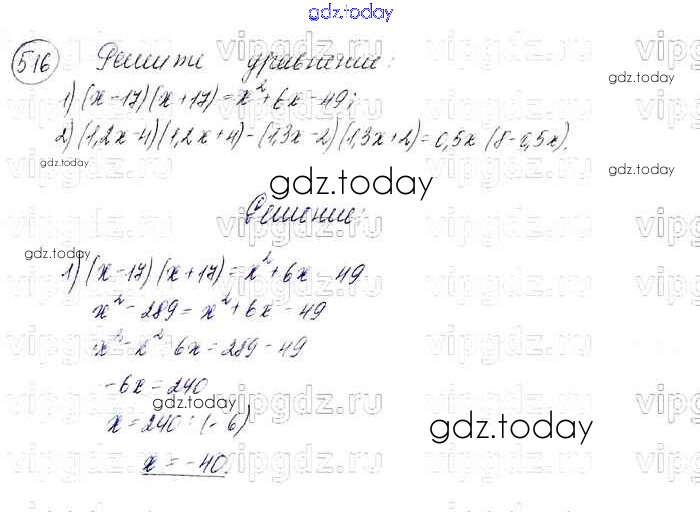 gdz.today
516 Решите уравнение:
1) (x-17)(x+17) = x²+6x-49;
gdz.today
2) (1,2x-4)(1,2x+4)-(1,3x-2)(1,3x+2)=0,5x(8-0,5x).
gdz.today
gdz.today
gdz.today
Решение:
gdz.today
1) (x-17)(x+17) = x²+6x-49
x²-289 = x²+6x-49
x²-x²-6x = 289-49
-6x = 240
gdz.today
x = 240 : (-6)
gdz.today
x = -40.
vipgdz.ru